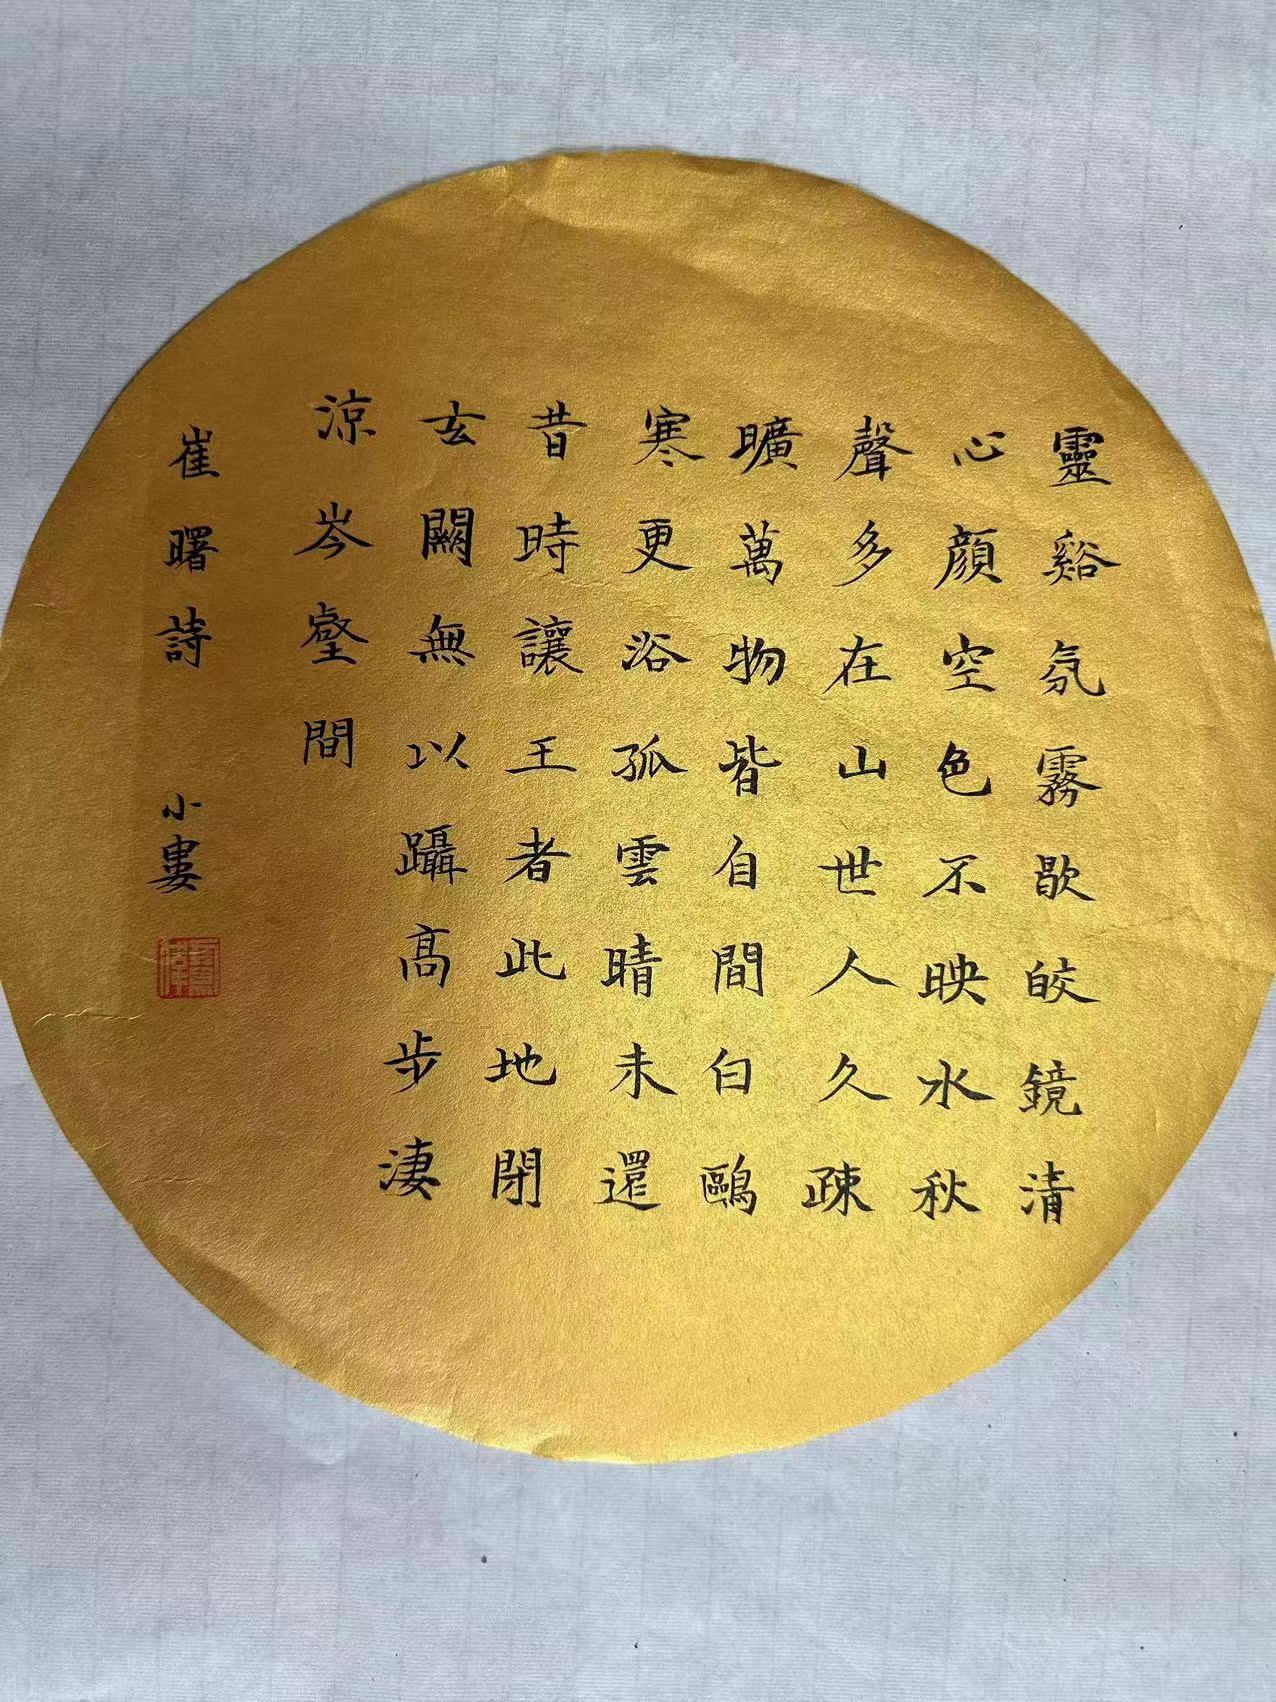 靈谿氛霧歇皎鏡清
心顔空色不映水秋
聲多在山世人久疎
曠萬物皆自間白鷗
寒更浴孤雲晴未還
昔時讓王者此地閉
玄闕無以躡高步淒
涼岑壑間
崔曙詩 小婁